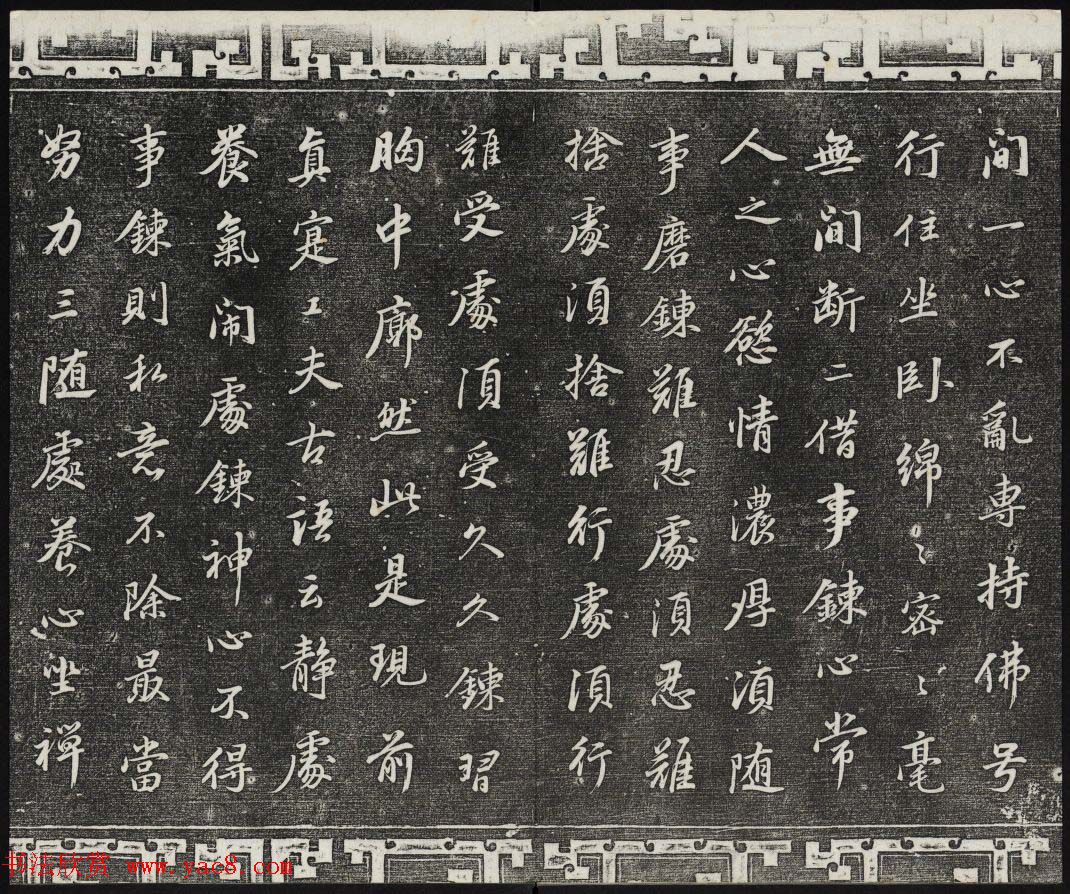 间一心不亂専持佛号
行住坐卧綿〻密〻毫
無间断二借事鍊心常
人之心慾情濃厚須随
事磨鍊難忍處須忍難
捨處須捨難行處須行
難受處須受久久鍊習
胸中廓然此是現前
真寔工夫古語云静處
養氣闹處鍊神心不得
事鍊則私意不除最當
努力三随處養心坐禪
书法欣赏 www.yac8.com